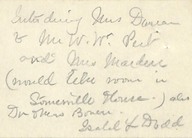 Introducing Mrs Duncan
& Mr. W. W. Peet
and Mrs Marden
(would like room in
Somerville House.) also
Dr. Mrs Bowen.
Isabel F. Dodd